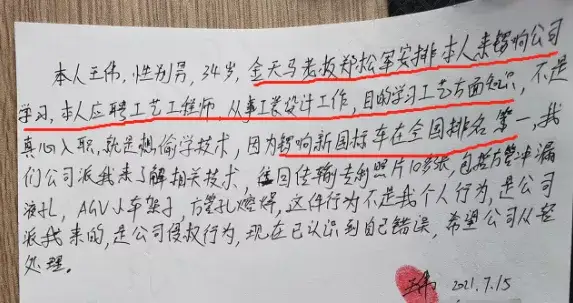 本人王伟,性别男,34岁,金天马老板郑松军安排本人来锣响公司
学习,本人应聘工艺工程师,从事工装设计工作,目的学习工艺方面知识,不是
真心入职,就是想偷学技术,因为锣响新国标车在全国排名第一,我
们公司派我来了解相关技术,回传输专利照片10多张,包括方管冲漏
液孔,AGV小车架子,方管孔焊,这件行为不是我个人行为,是公司
派我来的,是公司侵权行为,现在已认识到自己错误,希望公司从轻
处理。
王伟 2021.7.15